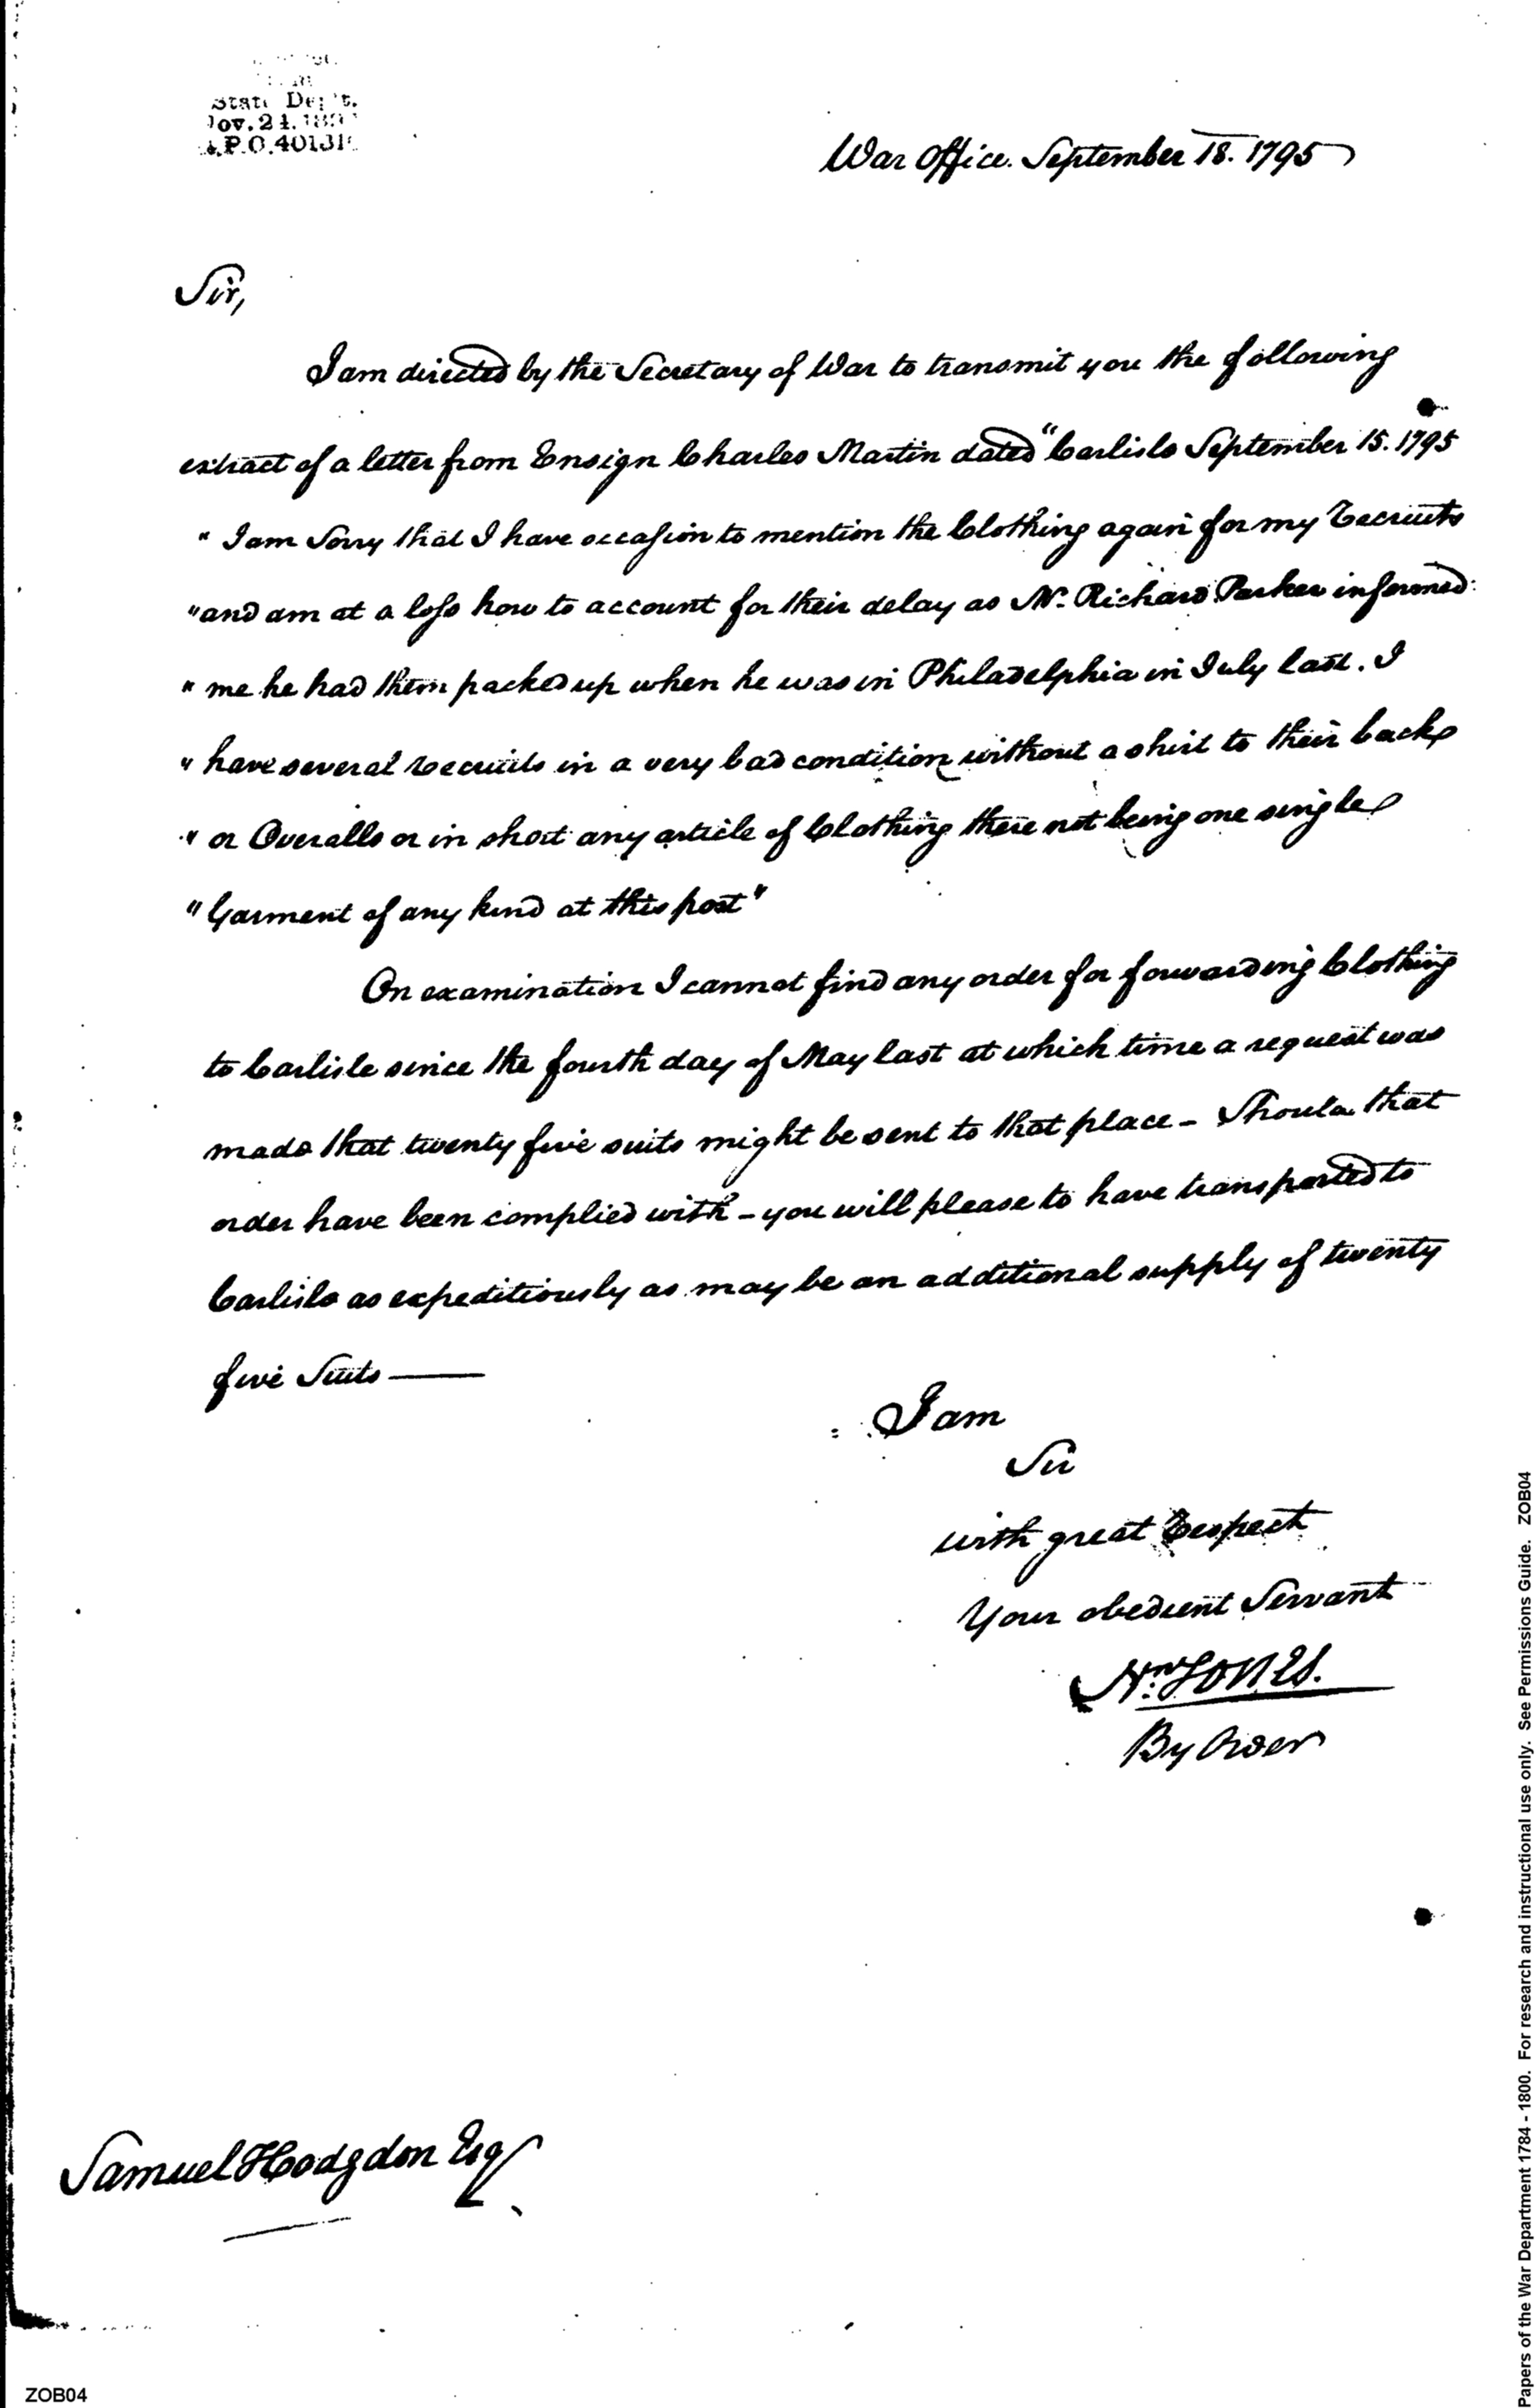 State Dep't.
War Office. September 18. 1795
Sir,
I am directed by the Secretary of War to transmit you the following
extract of a letter from Ensign Charles Martin dated "Carlisle September 15. 1795
" I am Sorry that I have occasion to mention the Clothing again for my Recruits
" and am at a loss how to account for their delay as Mr. Richard Parker informed
" me he had them packed up when he was in Philadelphia in July last. I
" have several Recruits in a very bad condition without a shirt to their backs
" or Overalls or in short any article of Clothing there not being one single
" Garment of any kind at this post"
On examination I cannot find any order for forwarding Clothing
to Carlisle since the fourth day of May last at which time a request was
made that twenty five suits might be sent to that place – Should that
order have been complied with – you will please to have transported to
Carlisle as expeditiously as may be an additional supply of twenty
five Suits ——
I am
Sir
with great Respect
Your obedient Servant
Jones.
By Order
Samuel Hodgdon Esq
ZOB04
Papers of the War Department 1784 - 1800. For research and instructional use only. See Permissions Guide. ZOB04